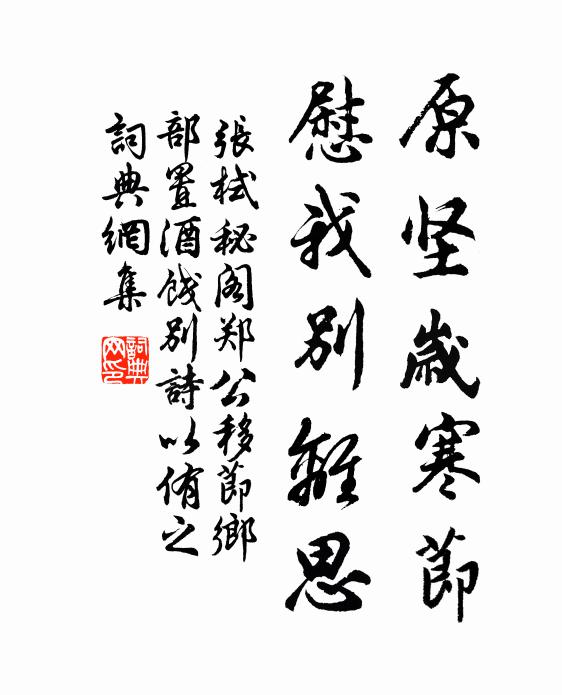 原坚歲寒節
慰我別離思
張栻秘阁郑公移節鄉
部置酒餞别詩以侑之
詞典網集
詞典网印